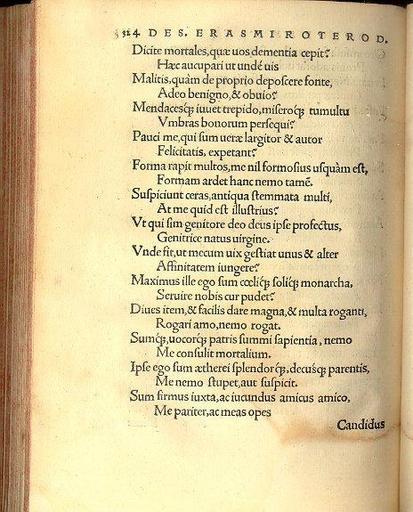 324 DES. ERASMI ROTEROD.
Dicite mortales, quæ uos dementia cepit?
Hæc aucupari ut undé uis
Malitis, quàm de proprio deposcere fonte,
Adeo benigno, & obuio?
Mendacesq; iuuet trepido, miseroq; tumultu
Vmbras bonorum persequi?
Pauci me, qui sum ueræ largitor & autor
Felicitatis, expetant?
Forma rapit multos, me nil formosius usquàm est,
Formam ardet hanc nemo tamē.
Suspiciunt ceras, antiqua stemmata multi,
At me quid est illustrius?
Vt qui sim genitore deo deus ipse profectus,
Genitrice natus uirgine.
Vnde fit, ut mecum uix gestiat unus & alter
Affinitatem iungere?
Maximus ille ego sum cœliq; soliq; monarcha,
Seruire nobis cur pudet?
Diues item, & facilis dare magna, & multa roganti,
Rogari amo, nemo rogat.
Sumq;, uocorq; patris summi sapientia, nemo
Me consulit mortalium.
Ipse ego sum ætherei splendorq;, decusq; parentis,
Me nemo stupet, aut suspicit.
Sum firmus iuxta, ac iucundus amicus amico,
Me pariter, ac meas opes
Candidus